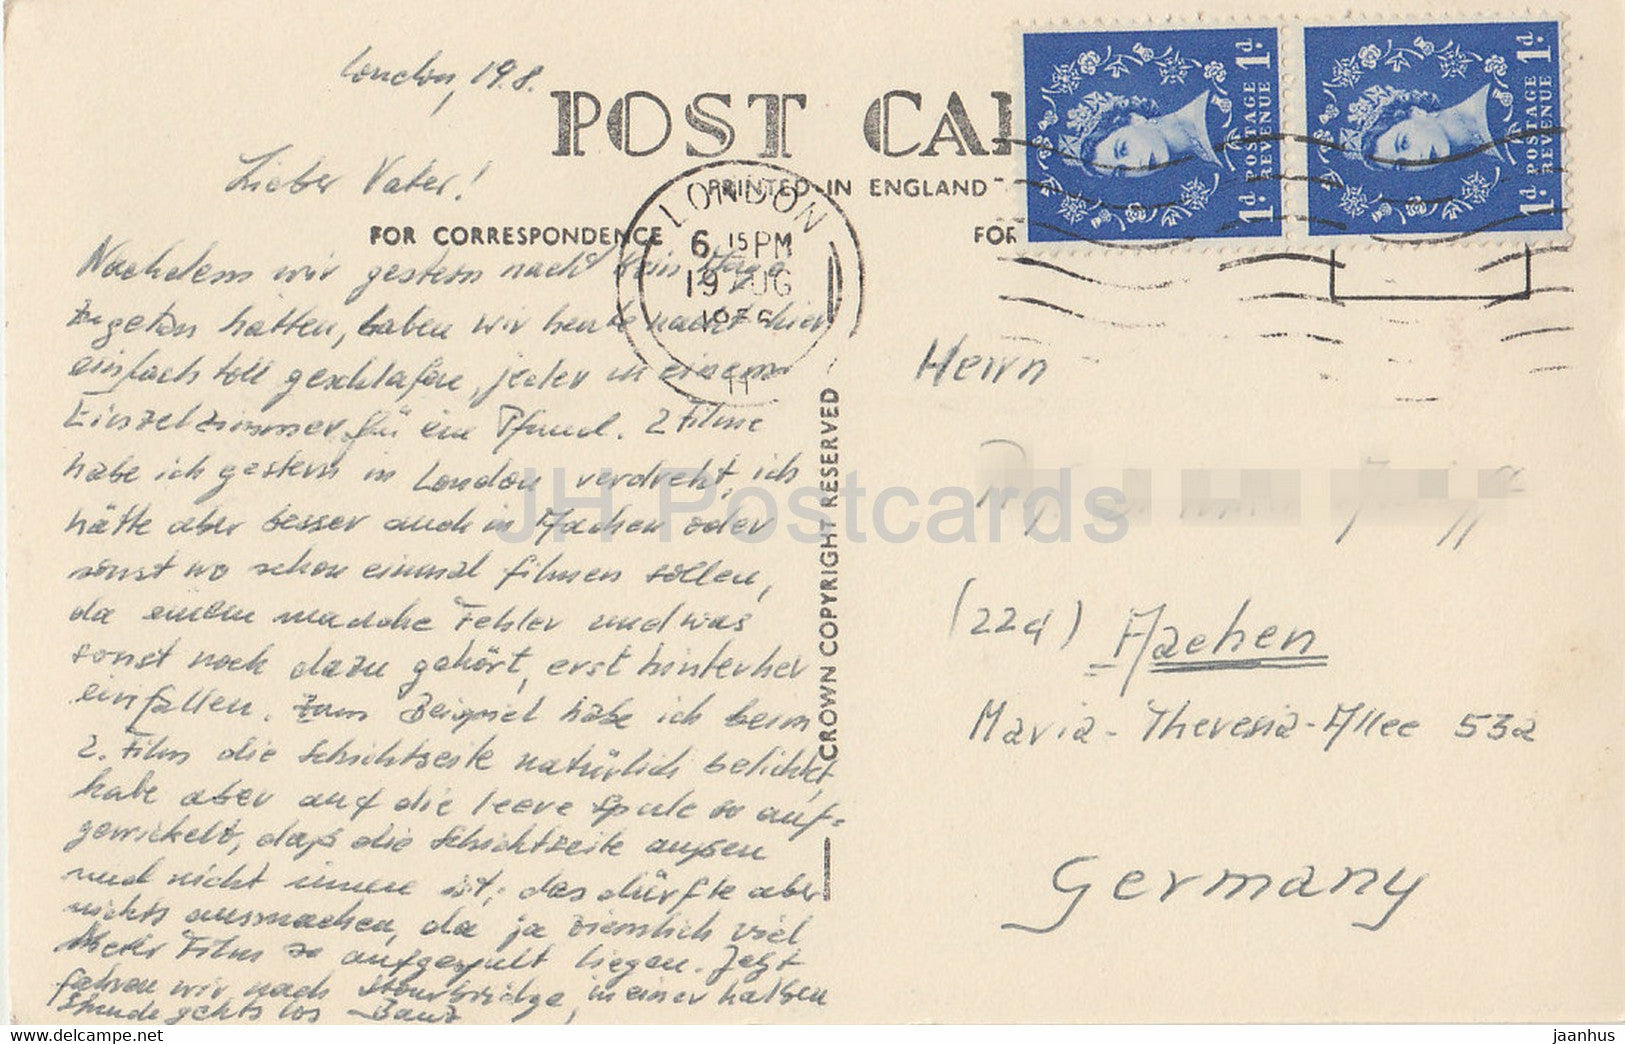 London, 19.8.
POST CA
PRINTED IN ENGLAND
Lieber Vater!
FOR CORRESPONDENCE
FOR
LONDON
6 15 PM
19 AUG
11
1d. POSTAGE REVENUE 1d.
1d. POSTAGE REVENUE 1d.
Nachdem wir gestern nacht kein Auge
zugetan hatten, haben wir heute nacht hier
einfach toll geschlafen, jeder in einem
Einzelzimmer für ein Pfund. 2 Filme
habe ich gestern in London verdreht, ich
hätte aber besser auch in Aachen oder
sonst wo schon einmal filmen sollen,
da einem manche Fehler und was
sonst noch dazu gehört, erst hinterher
einfallen. Zum Beispiel habe ich beim
2. Film die Schichtseite natürlich belichtet,
habe aber auf die leere Spule so auf-
gewickelt, daß die Schichtseite außen
und nicht innen ist; das dürfte aber
nichts ausmachen, da ja ziemlich viel
Meter Film so aufgespult liegen. Jetzt
fahren wir nach Stourbridge, in einer halben
Stunde gehts los
CROWN COPYRIGHT RESERVED
Herrn
(22a) Aachen
Maria-Theresia-Allee 53a
Germany
JH Postcards
www.delcampe.net
jaanhus